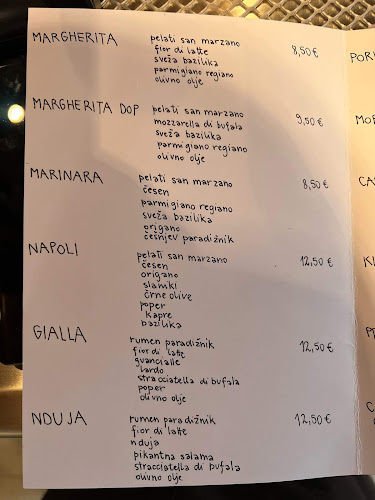 MARGHERITA
pelati san marzano
fior di latte
sveža bazilika
parmigiano regiano
olivno olje
8,50 €
MARGHERITA DOP
pelati san marzano
mozzarella di bufala
sveža bazilika
parmigiano regiano
olivno olje
9,50 €
MARINARA
pelati san marzano
česen
parmigiano regiano
sveža bazilika
origano
češnjev paradižnik
8,50 €
NAPOLI
pelati san marzano
česen
origano
slaniki
črne olive
poper
kapre
bazilika
12,50 €
GIALLA
rumen paradižnik
fior di latte
guancialle
lardo
stracciatella di bufala
poper
olivno olje
12,50 €
NDUJA
rumen paradižnik
fior di latte
nduja
pikantna salama
stracciatella di bufala
olivno olje
12,50 €